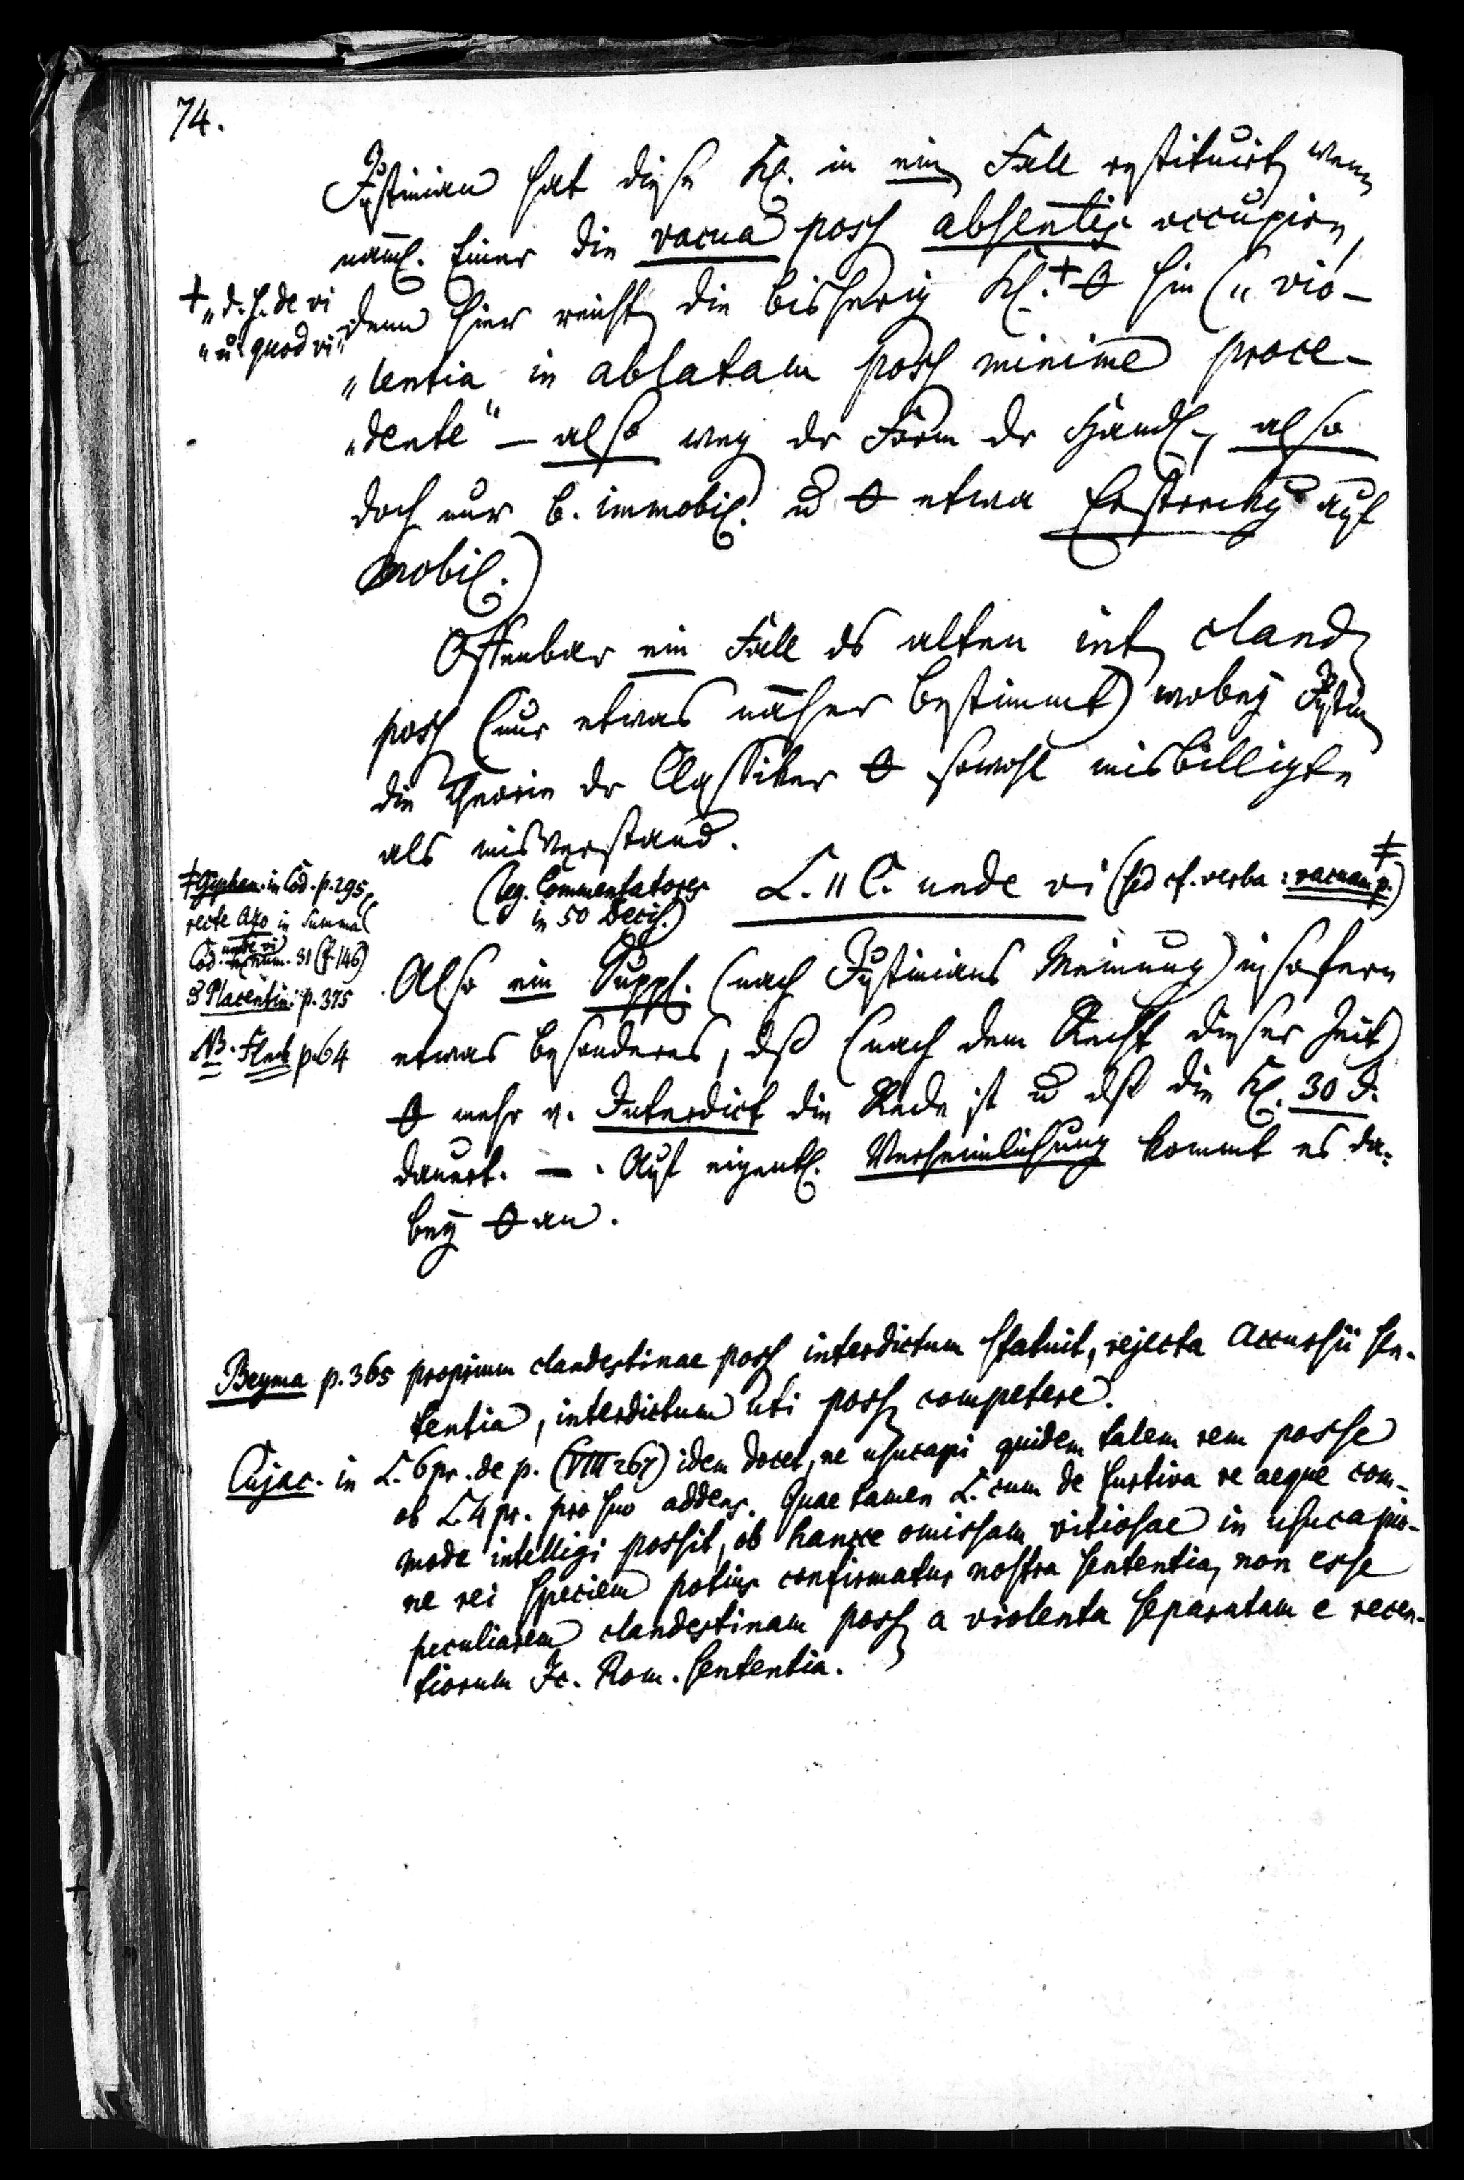 74.
Justinian hat diese Kl. in ein Fall restituirt wenn
näml. Einer die vacua poss absentis occupirn,
+ „d. h. de vi
„u quod vi“
denn hier reicht die bisherig Kl.+ θ hin („vio-
„lentia in ablatam poss minime proce-
„dente“ – also weg dr Form dr Handl, also
doch nur b. immobil. u θ etwa Erstreckg auf
mobil.)
Offenbar ein Fall ds alten int cland
poss (nur etwas näher bestimmt) wobey Justin
die Theorie dr Classiker θ sowohl misbilligte
als misverstand.
(leg. Commentatores
in 50 Decis.)
L. 11 C. unde vi (sed cf. verba: vacuam p.) ‡
‡ Giphan. in Cod. p. 295,
recte Azo in Summa
Cod. unde vi num. 31 (f. 146)
& Placentin. p. 375
NB. Fleck p. 64
Also ein Suppl. (nach Justinians Meinung) insofern
etwas besonderes, dß (nach dem Recht dieser Zeit)
θ mehr v. Interdict die Rede ist u dß die Kl. 30 J.
dauert. –. Auf eigentl. Verheimlichung kommt es da-
bey θ an.
Beyma p. 365 proprium clandestinae poss interdictum statuit, rejecta Accursii sen-
tentia, interdictum uti poss competere.
Cujac. in L. 6 pr. de p. (VIII 267) idem docet, ne usucapi quidem talem rem posse
ob L. 4 pr. pro suo addens. Quae tamen L. cum de furtiva re aeque com-
mode intelligi possit, ob hancce omissam vitiosae in usucapio-
ne rei speciem potius confirmatur nostra sententia, non esse
peculiarem clandestinam poss a violenta separatam e recen-
tiorum Jc. Rom. sententia.